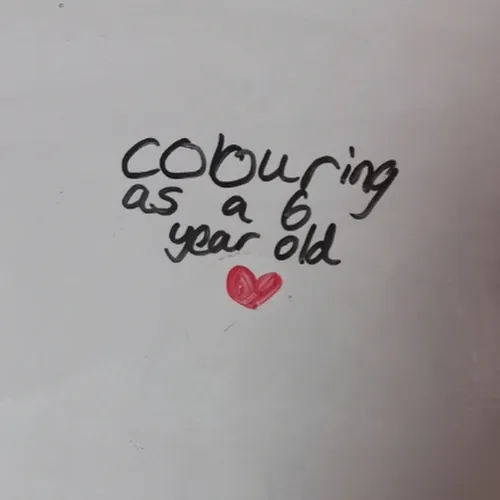 colouring
as a 6
year old